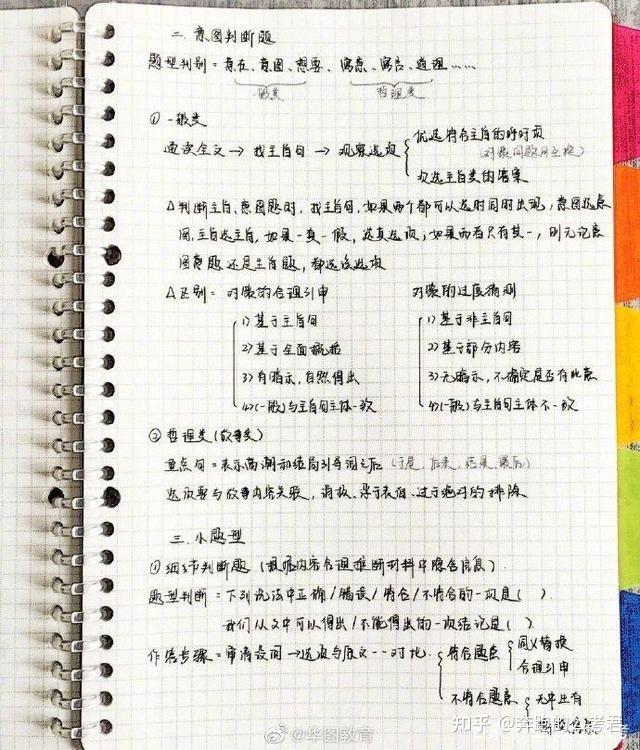 二.意图判断题
题型判别=意在、意图、想要、寓意、寓言、道理……
一般类 哲理类
① 一般类
速读全文→找主旨句→观察选项
优选符合主旨的呼吁项
(对策问题用主换)
次选主旨类的答案
△判断主旨、意图题时,找主旨句,如果两个都可以选时同时出现,意图选意
图,主旨选主旨,如果一真一假,选真选项;如果两者只有其一,则无论意
图意题还是主旨题,都选该选项
△区别: 对策的合理引申 对策的过度猜测
1)基于主旨句 1)基于非主旨句
2)基于全面概括 2)基于部分内容
3)有暗示,自然得出 3)无暗示,不确定是否有此意
4)(一般)与主旨句主体一致 4)(一般)与主旨句主体不一致
② 哲理类(故事类)
重点句=表示高潮和结局引导词之后(于是、后来、结果、最后)
选项要与故事内容关联,消极、浮于表面、过于绝对的排除
三.小题型
①细节判断题(根据内容合理推断材料中隐含信息).
题型判断=下列说法中正确/错误/符合/不符合的一项是( ).
我们从文中可以得出/不能得出的一项结论是( ).
作答步骤=审清设问→选项与原文一一对比.
符合题意
同义替换
合理引申
不符合题意
无中生有
@华图教育
知乎 @奔跑的公考君